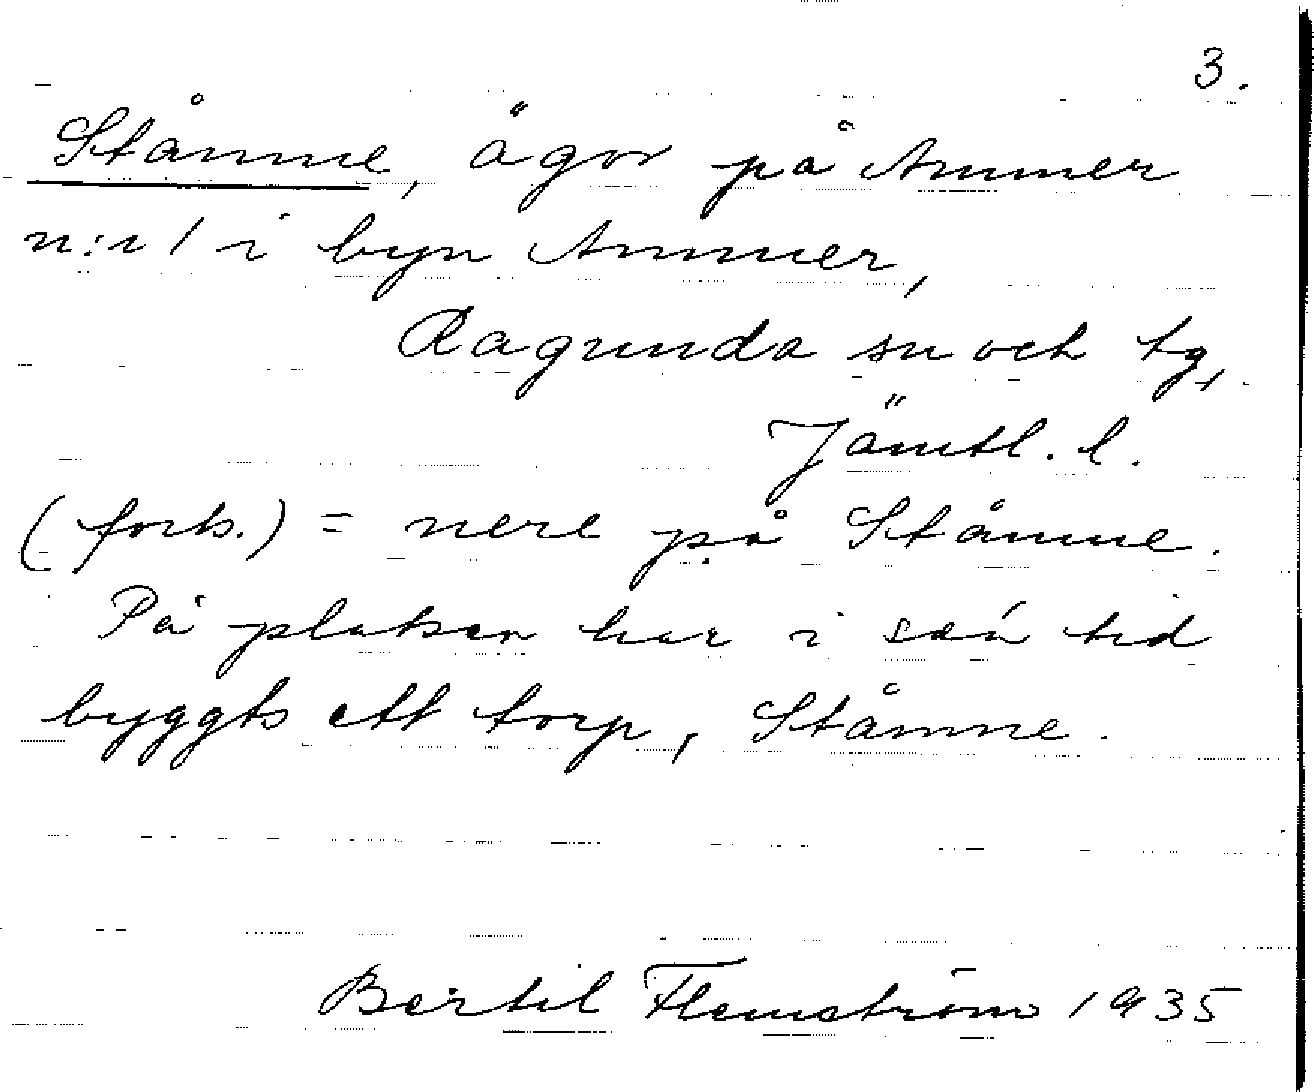 3.
Stånne, ägor på Ammer
n:r 1 i byn Ammer,
Ragunda sn och tg,
Jämtl. l.
(forts.) = nere på Stånne.
På platsen har i sen tid
byggts ett torp, Stånne.
Bertil Flemström 1935